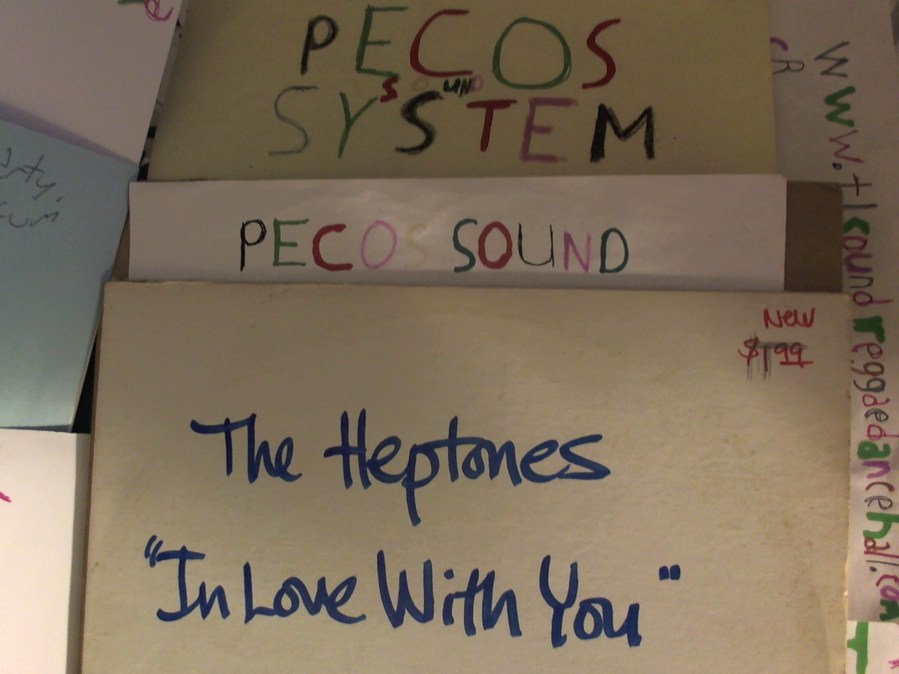 PECOS
SOUND
SYSTEM
PECOS SOUND
NEW
$1.99
The Heptones
"In Love With You"
www.tlsoundreggaedancehall.com